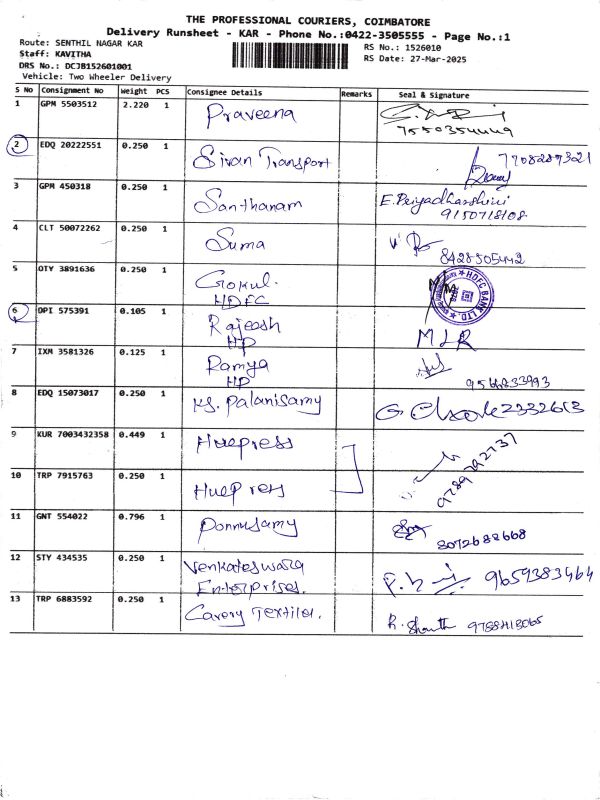 THE PROFESSIONAL COURIERS, COIMBATORE
Delivery Runsheet - KAR - Phone No.:0422-3505555 - Page No.:1
Route: SENTHIL NAGAR KAR
Staff: KAVITHA
DRS No.: DCJB152601001
Vehicle: Two Wheeler Delivery
RS No.: 1526010
RS Date: 27-Mar-2025
S No Consignment No Weight PCS Consignee Details Remarks Seal & Signature
1 GPM 5503512 2.220 1 Praveena
7550354449
2 EDQ 20222551 0.250 1 Sivan Transport 7708289321
3 GPM 450318 0.250 1 Santhanam E. Priyadharshini
9150718108
4 CLT 50072262 0.250 1 Suma
8428305442
5 OTY 3891636 0.250 1 Gokul.
HDFC
HDFC BANK LTD.
6 DPI 575391 0.105 1 Rajeesh MLR
HP
7 IXM 3581326 0.125 1 Ramya
HP 9566833993
8 EDQ 15073017 0.250 1 KS. Palanisamy G. 2332613
9 KUR 7003432358 0.449 1 Huepress
9789792737
10 TRP 7915763 0.250 1 Huepress
11 GNT 554022 0.796 1 Ponnusamy
8072688668
12 STY 434535 0.250 1 Venkateswara
Enterprises. 9659383464
13 TRP 6883592 0.250 1 Cavery Textiles.
9788413065